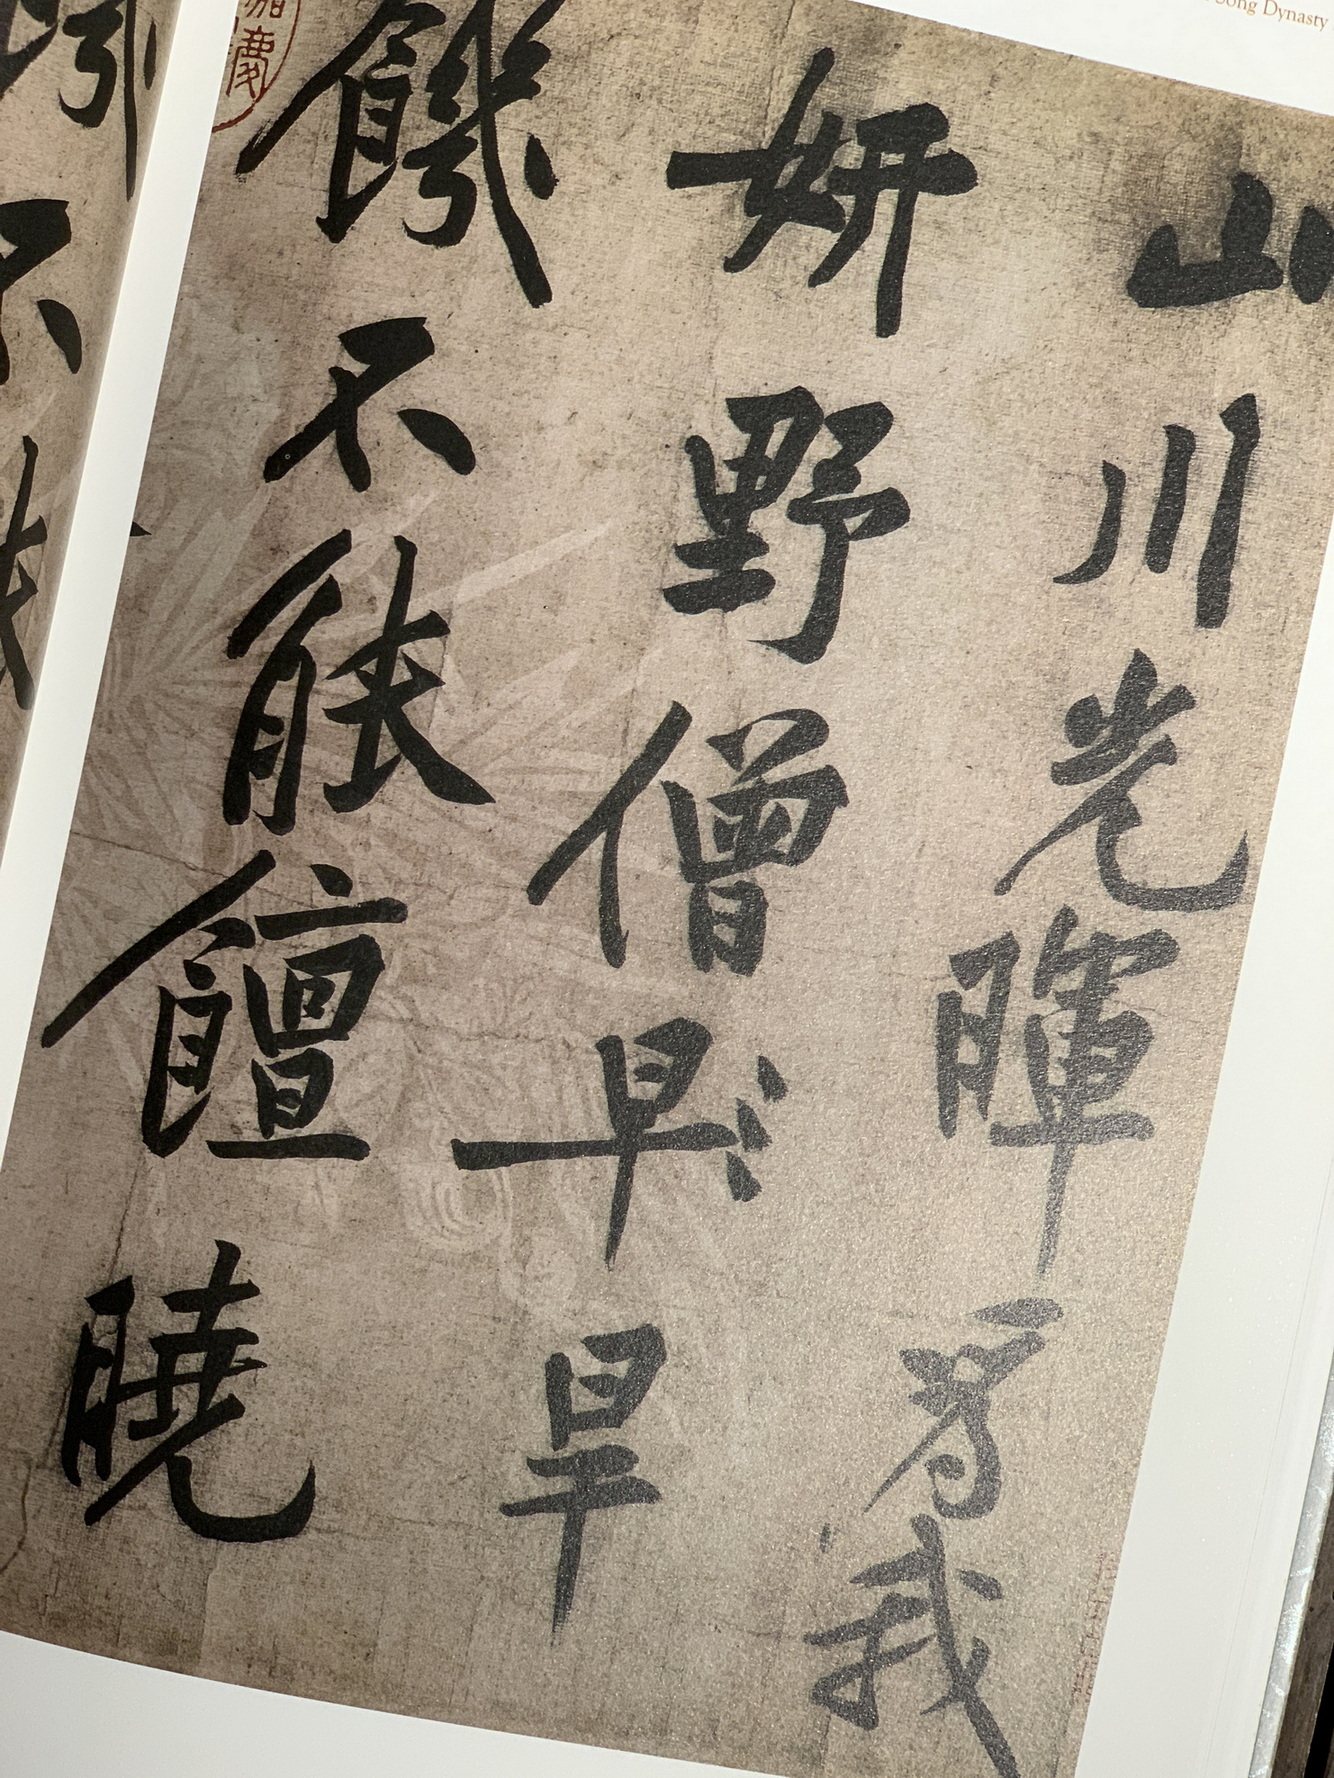 Song Dynasty
山川光暉為我
妍野僧早旱
饑不能饘曉